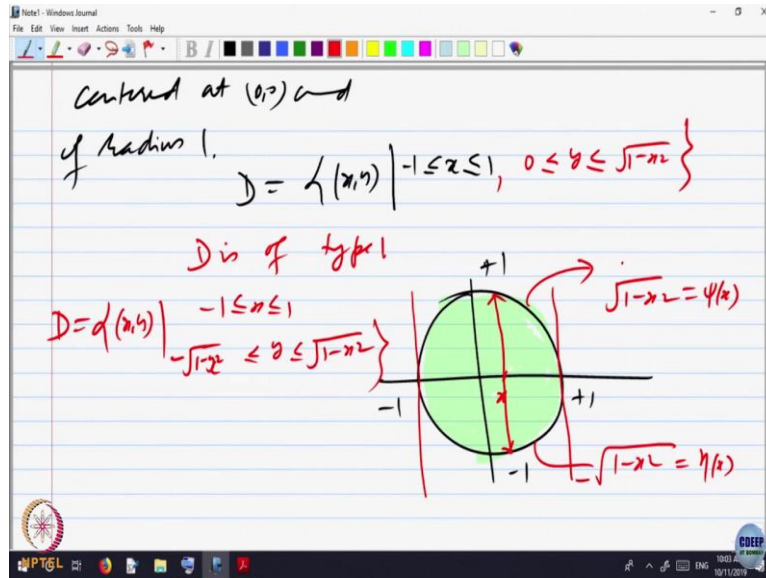 Note1 - Windows Journal
File Edit View Insert Actions Tools Help
B I
centered at (0,0) and
of radius 1.
D = {(x,y) | -1 ≤ x ≤ 1, 0 ≤ y ≤ √1-x² }
D is of type 1
D = {(x,y) | -1 ≤ x ≤ 1
-√1-x² ≤ y ≤ √1-x² }
+1
√1-x² = ψ(x)
x
-1
+1
-1
-√1-x² = η(x)
NPTEL
CDEEP
IIT BOMBAY
ENG
10:03 A
10/11/2019